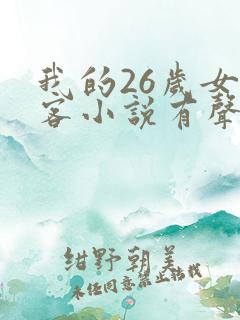 我的26歲女
客小說有聲
紺野朝美
未经同意禁止转载